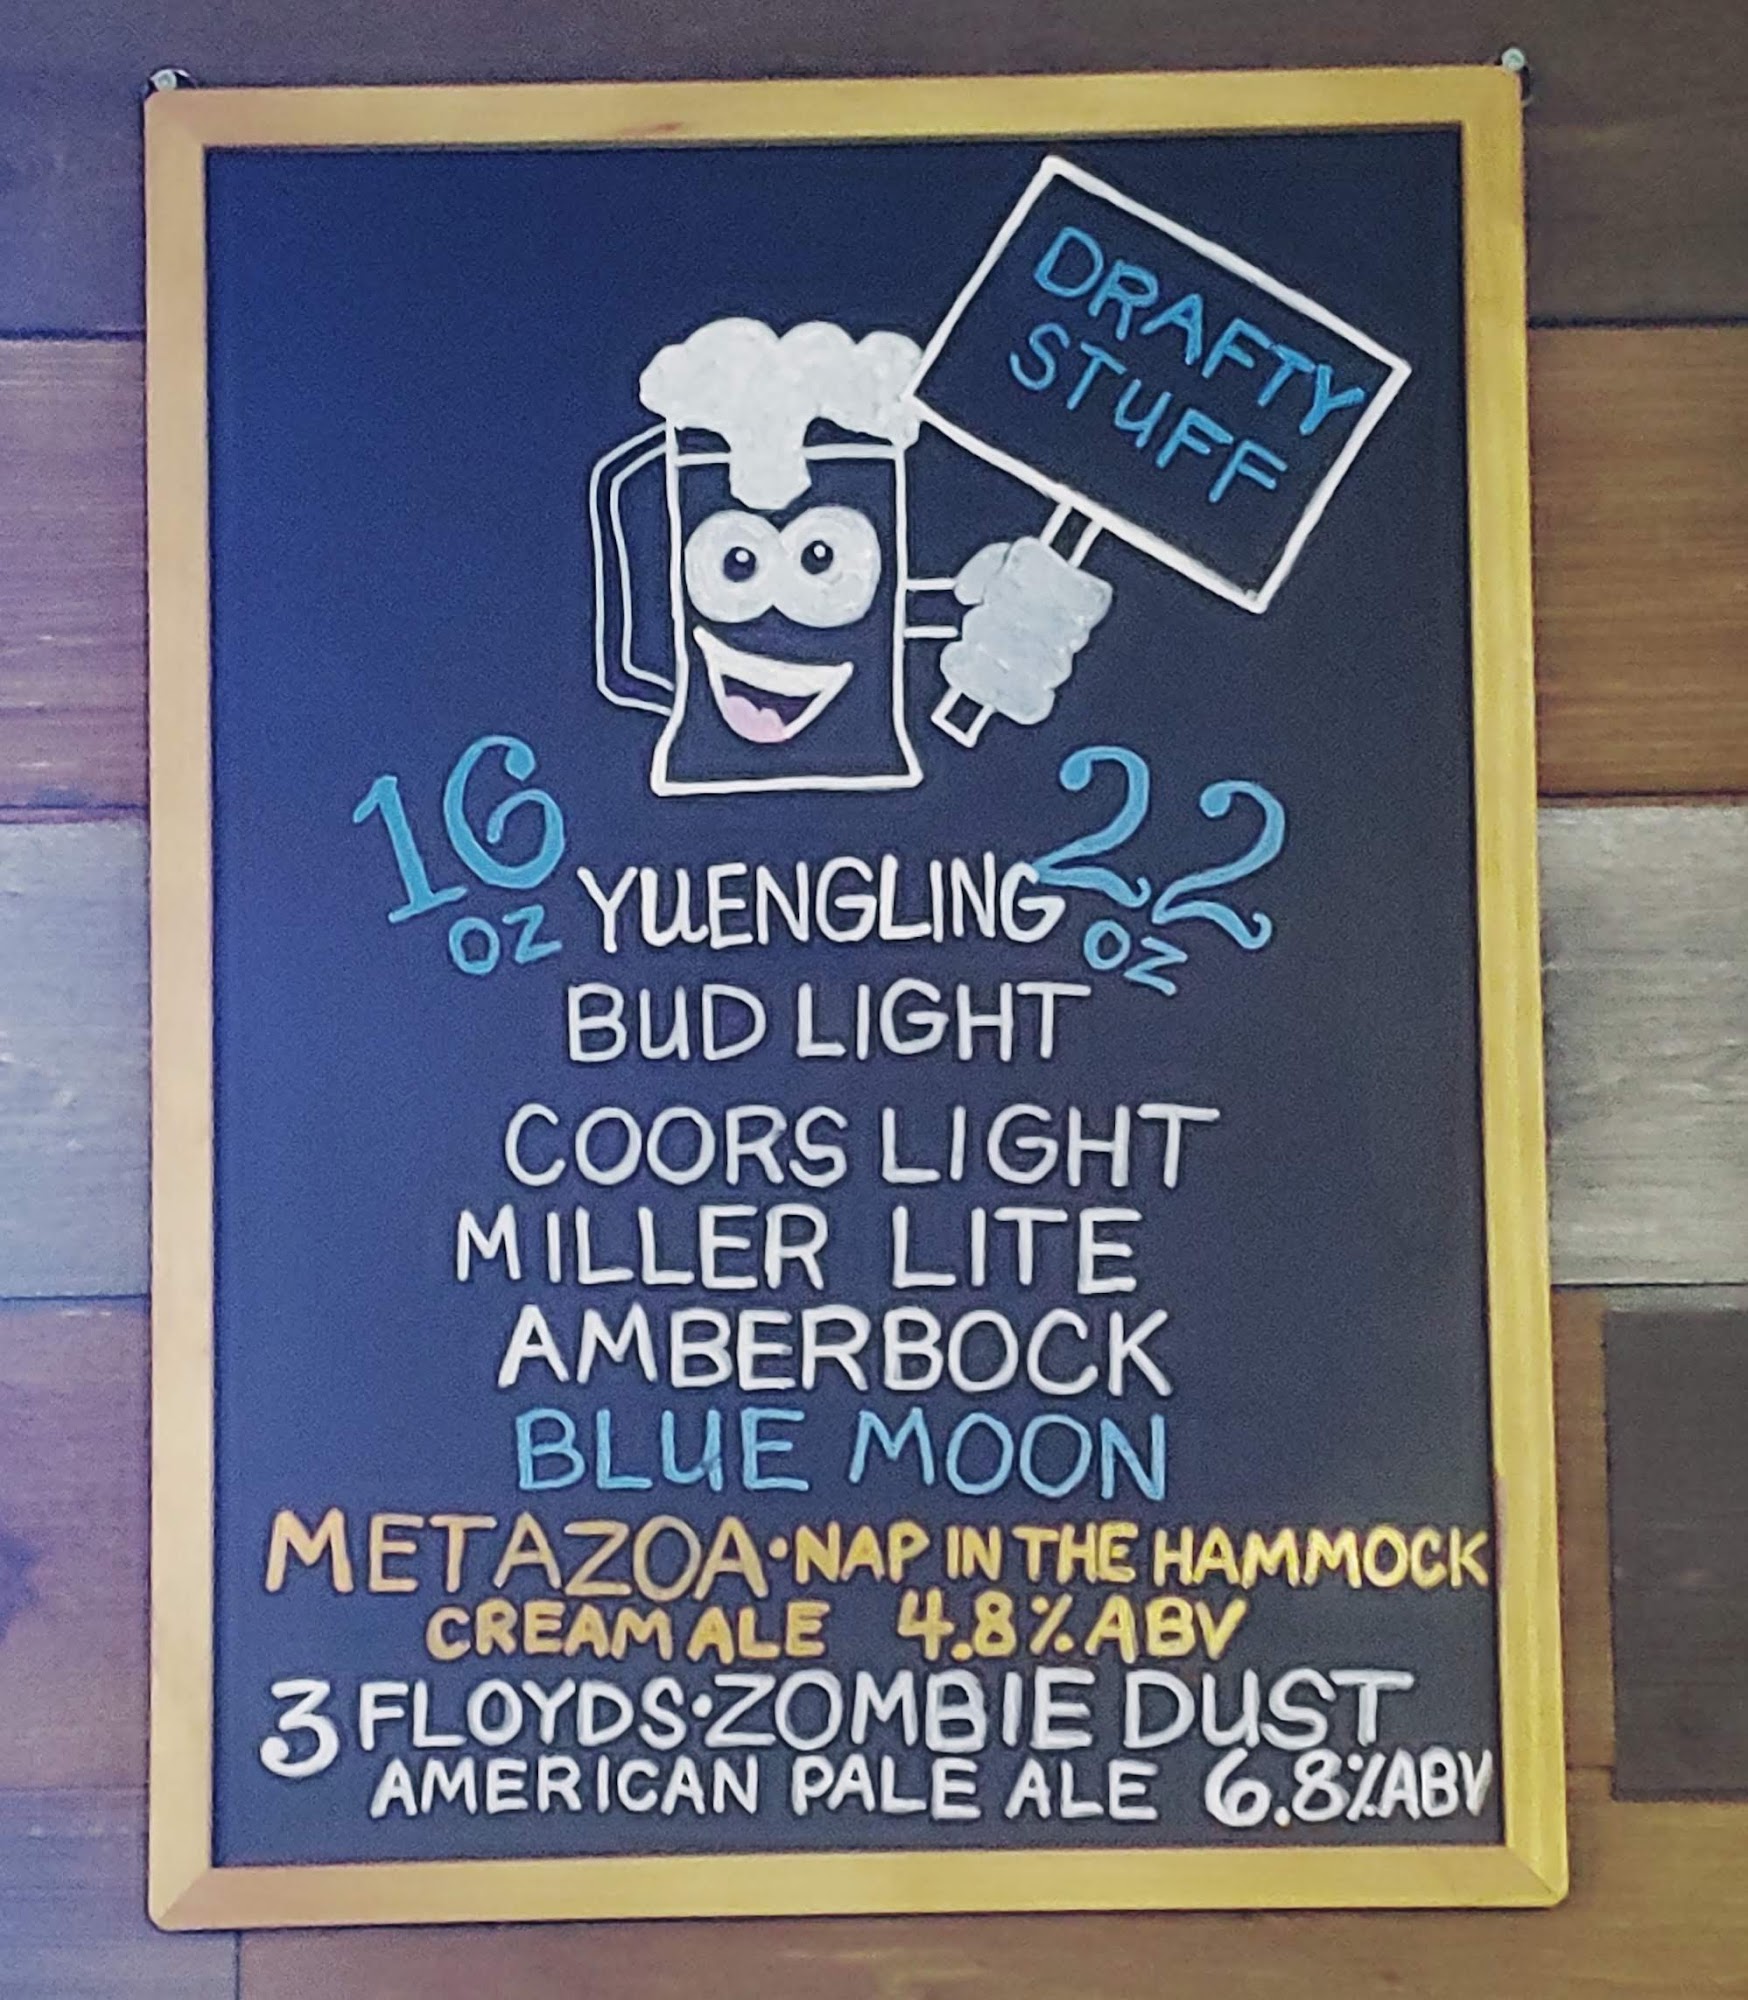 DRAFTY
STUFF
16 OZ
22 OZ
YUENGLING
BUD LIGHT
COORS LIGHT
MILLER LITE
AMBERBOCK
BLUE MOON
METAZOA•NAP IN THE HAMMOCK
CREAM ALE 4.8% ABV
3 FLOYDS•ZOMBIE DUST
AMERICAN PALE ALE 6.8% ABV